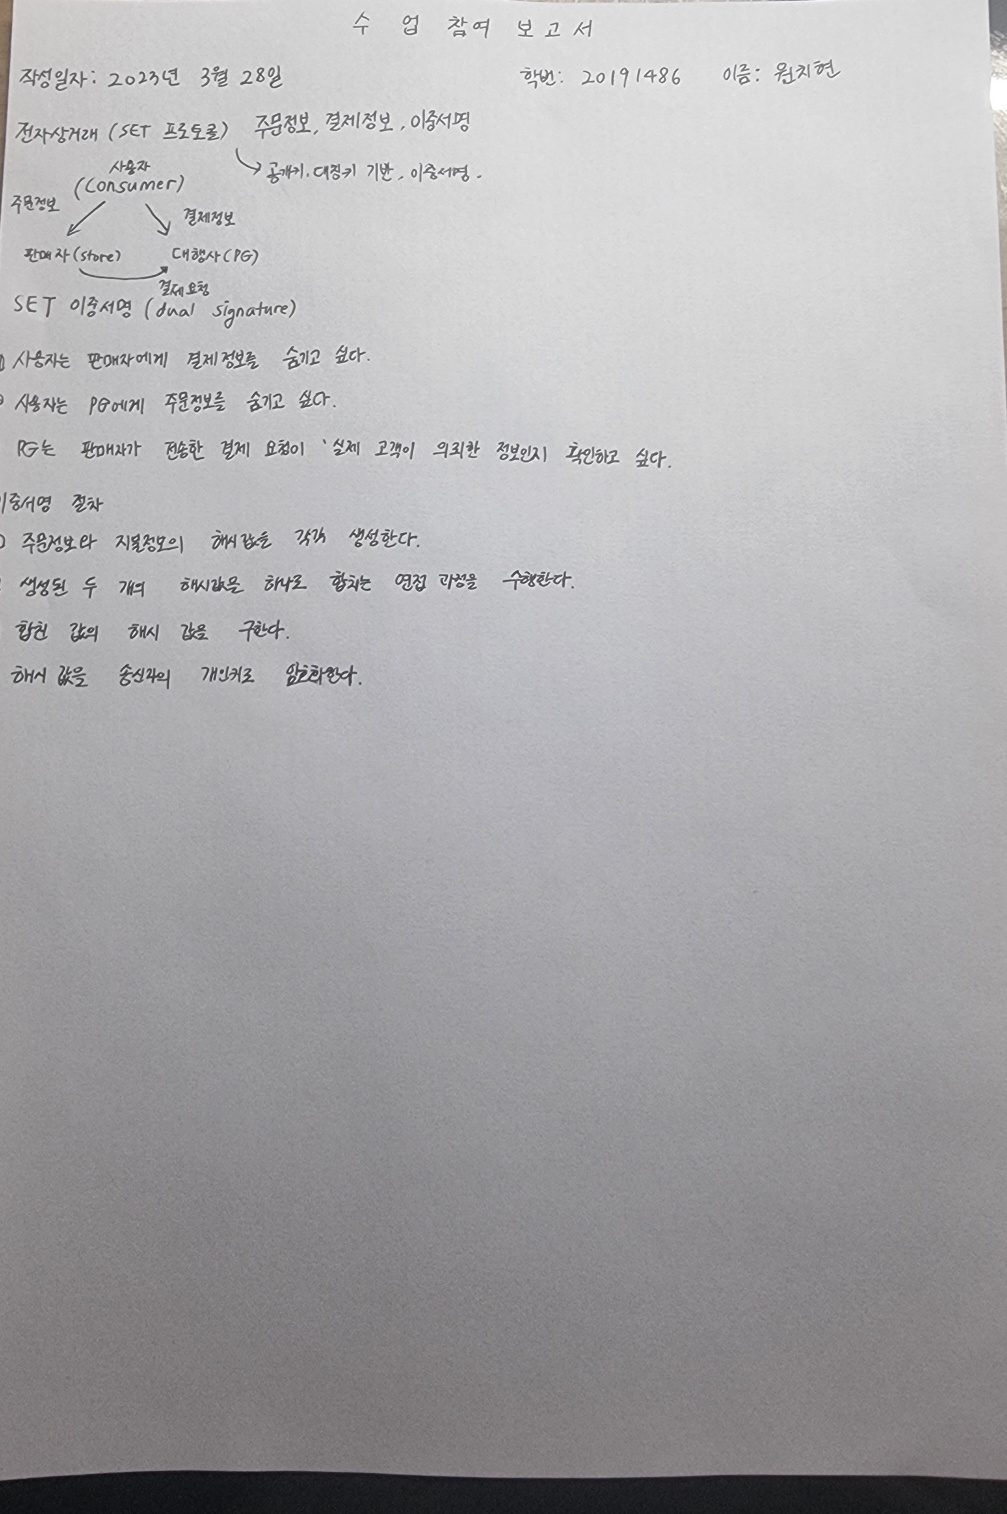 수 업 참여 보고서
작성일자: 2023년 3월 28일 학번: 20191486 이름: 원지현
전자상거래 (SET 프로토콜) 주문정보, 결제정보, 이중서명
공개키, 대칭키 기반, 이중서명.
사용자
(Consumer)
주문정보 결제정보
판매자(store) 대행사(PG)
결제요청
SET 이중서명 (dual signature)
사용자는 판매자에게 결제정보를 숨기고 싶다.
사용자는 PG에게 주문정보를 숨기고 싶다.
PG는 판매자가 전송한 결제 요청이 '실제 고객이 의뢰한 정보인지 확인하고 싶다.
이중서명 절차
주문정보와 지불정보의 해시값을 각각 생성한다.
생성된 두 개의 해시값을 하나로 합치는 연접 과정을 수행한다.
합친 값의 해시 값을 구한다.
해시 값을 송신자의 개인키로 암호화한다.